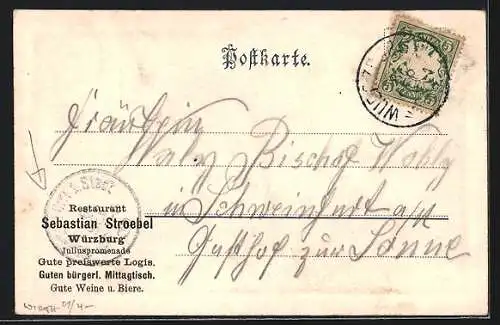 Postkarte.
Fräulein
Bischof
in Schweinfurt a/M
Gasthof zur Sonne
Restaurant
Sebastian Stroebel
Würzburg
Juliuspromenade
Gute preiswerte Logis.
Guten bürgerl. Mittagtisch.
Gute Weine u. Biere.